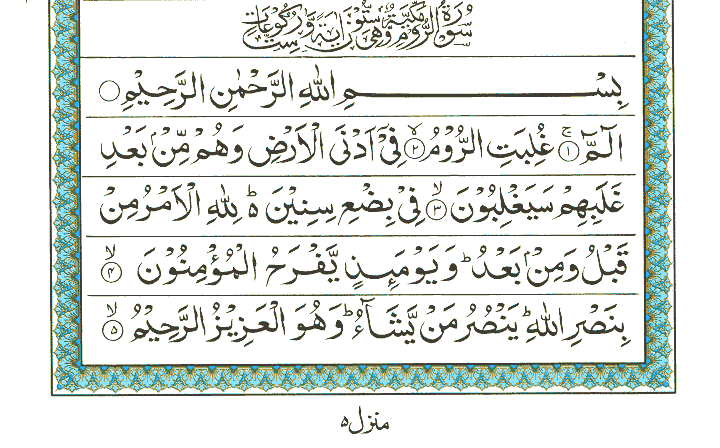 سُوْرَةُ الرُّوْمِ مَكِّيَّةٌ وَّهِيَ سِتُّوْنَ اٰيَةً وَّ سِتُّ رُكُوْعَاتٍ
بِسْمِ اللّٰهِ الرَّحْمٰنِ الرَّحِيْمِ ۝
الٓمّٓ ۝۱ۚ غُلِبَتِ الرُّوْمُ ۝۲ۙ فِيْۤ اَدْنَى الْاَرْضِ وَهُمْ مِّنْۢ بَعْدِ
غَلَبِهِمْ سَيَغْلِبُوْنَ ۝۳ۙ فِيْ بِضْعِ سِنِيْنَ ؕ۬ لِلّٰهِ الْاَمْرُ مِنْ
قَبْلُ وَمِنْۢ بَعْدُ ؕ وَيَوْمَىِٕذٍ يَّفْرَحُ الْمُؤْمِنُوْنَ ۝۴ۙ
بِنَصْرِ اللّٰهِ ؕ يَنْصُرُ مَنْ يَّشَآءُ ؕ وَهُوَ الْعَزِيْزُ الرَّحِيْمُ ۝۵ۙ
منزل ۵